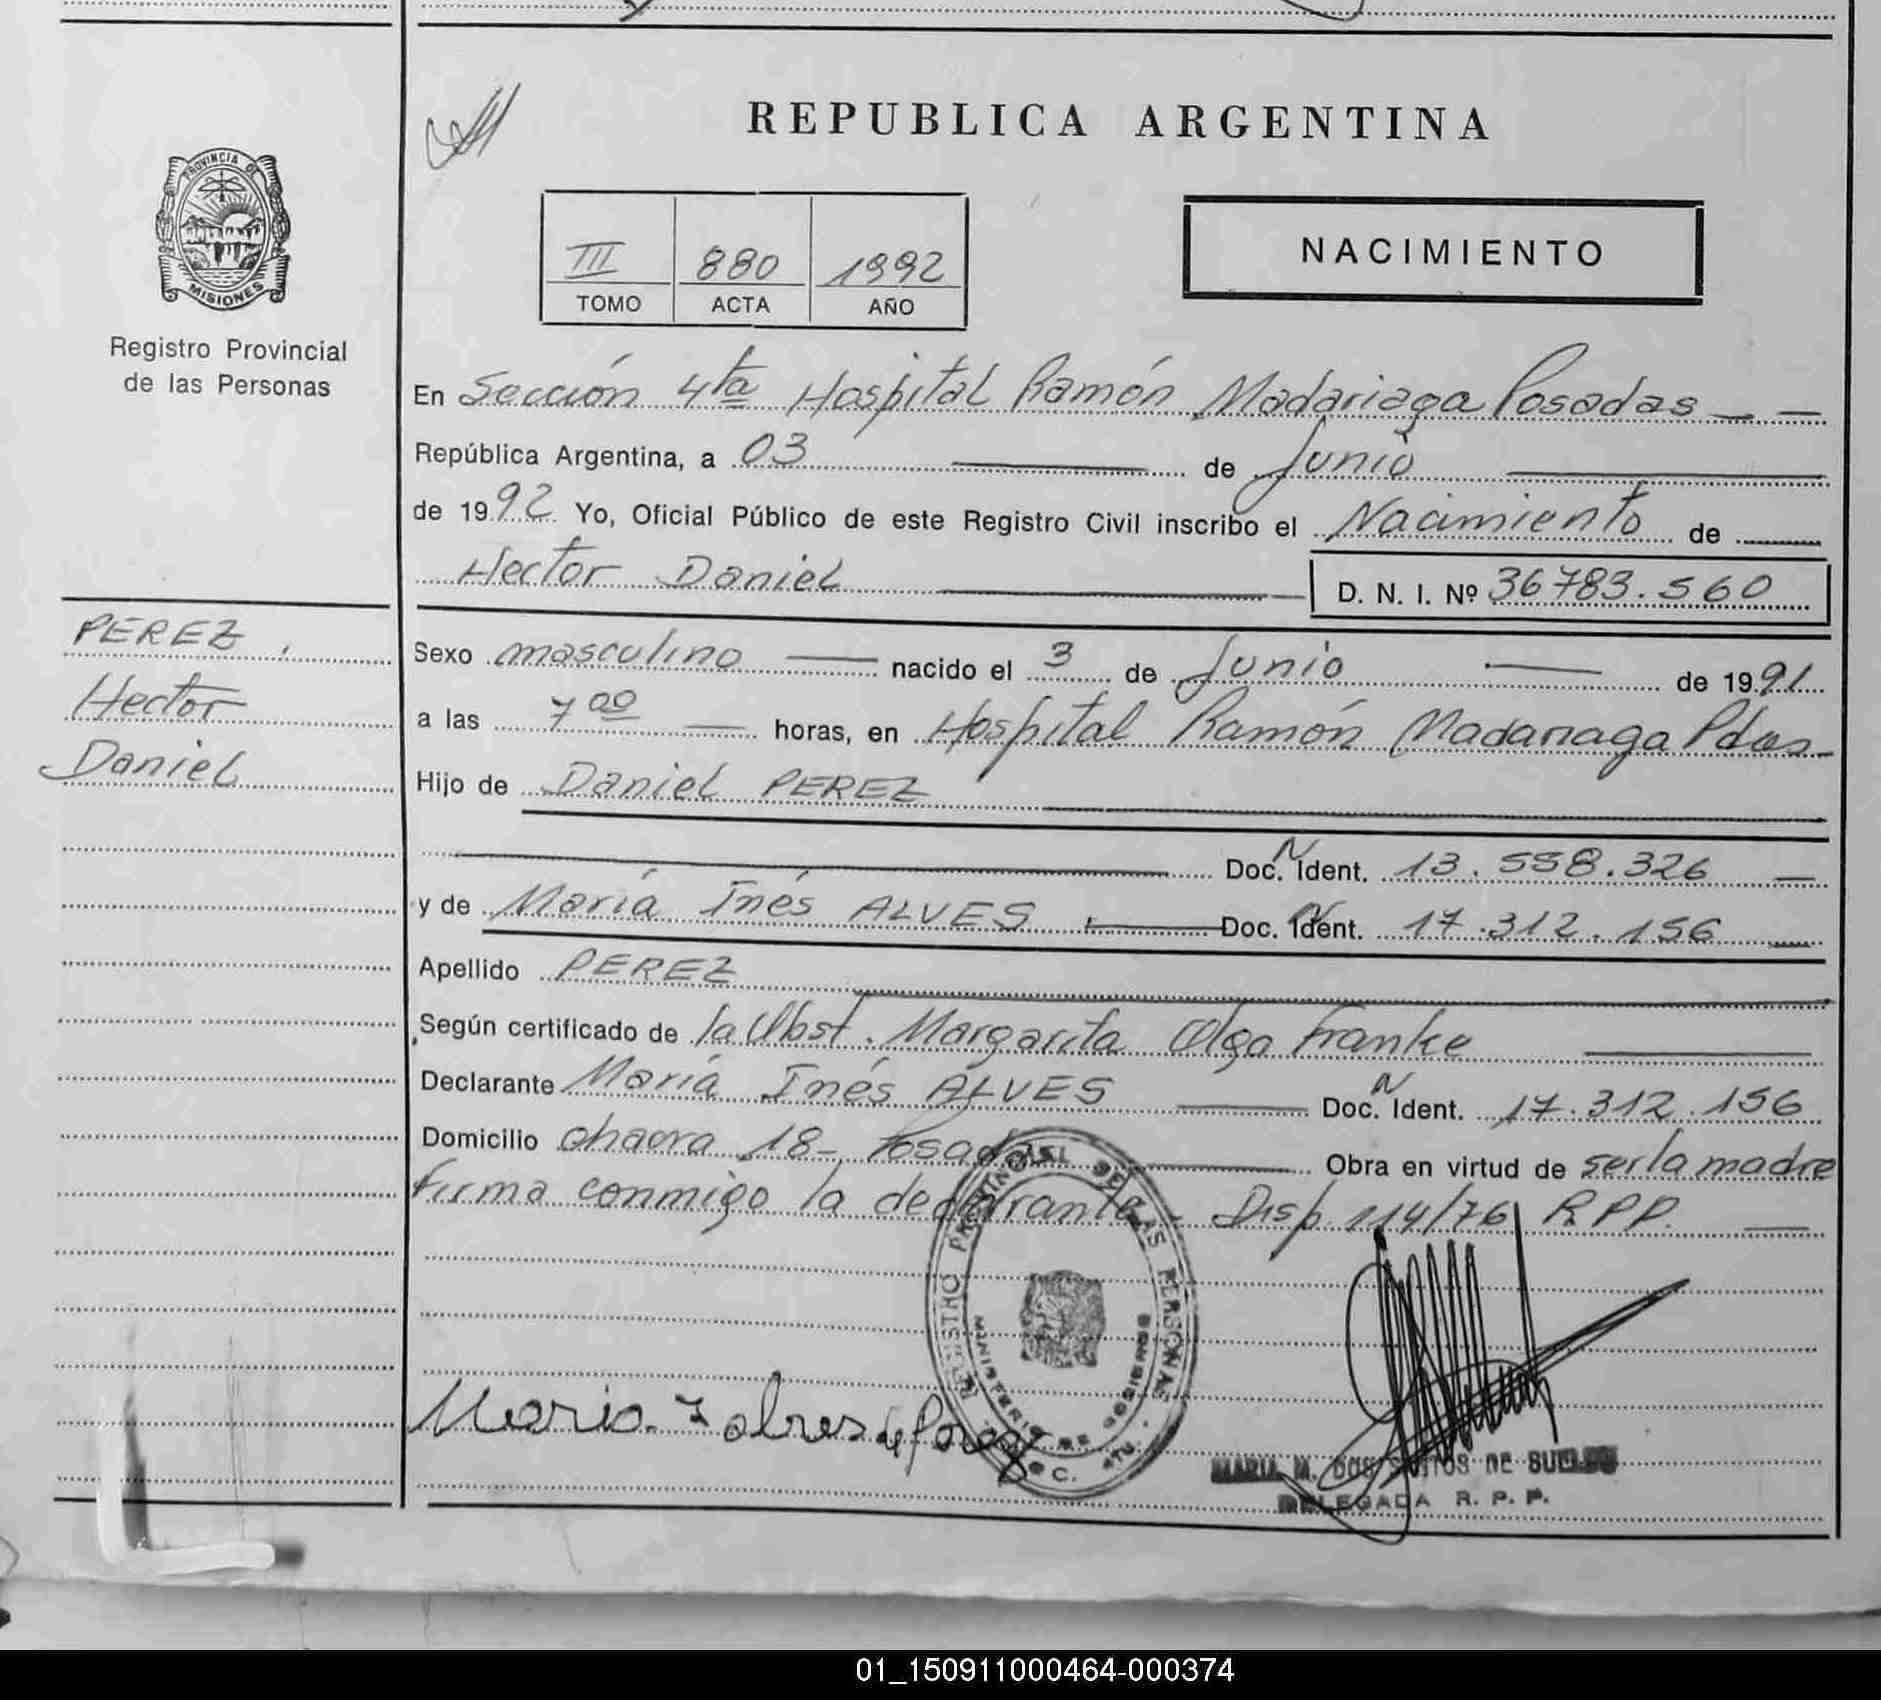 REPUBLICA ARGENTINA
PROVINCIA DE
MISIONES
Registro Provincial
de las Personas
III 880 1992
TOMO ACTA AÑO
NACIMIENTO
En Sección 4ta Hospital Ramón Madariaga Posadas
República Argentina, a 03 de Junio
de 1992 Yo, Oficial Público de este Registro Civil inscribo el Nacimiento de
Hector Daniel D. N. I. Nº 36783.560
PEREZ
Hector
Daniel
Sexo masculino nacido el 3 de Junio de 1991
a las 7 00 horas, en Hospital Ramón Madariaga Pdas
Hijo de Daniel PEREZ
Doc. N Ident. 13.558.326
y de María Inés ALVES Doc. N Ident. 17.312.156
Apellido PEREZ
Según certificado de la Obst. Margarita Olga Franke
Declarante María Inés ALVES Doc. N Ident. 17.312.156
Domicilio chacra 18- Posadas Obra en virtud de ser la madre
firma conmigo la declarante - Disp. 114/76 R.P.P.
REGISTRO PROVINCIAL DE LAS PERSONAS
MINISTERIO DE GOBIERNO
Maria I alves de perez
MARIA M. DOS SANTOS DE SUELDO
DELEGADA R. P. P.
01_150911000464-000374